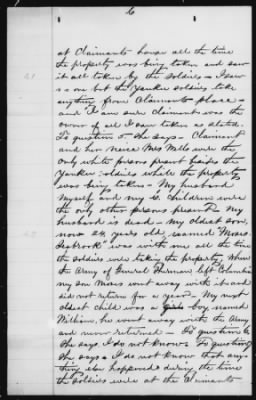 6
at Claimants house all the time
the property was being taken and saw
it all taken by the soldiers - I saw
no one but the Yankee soldiers take
anything from Claimants place -
and I am sure claimant was the
owner of all I saw taken as stated.
To question 5 She says - Claimant
and her neice Mrs Mills were the
only white persons present besides the
Yankee soldiers while the property
was being taken - My husband
myself and my 6 children were
the only other persons present - My
husband is dead - My oldest son,
now 24 years old, named "Moses
Seabrook" was with me all the time
the soldiers were taking the property. When
the Army of General Sherman left Columbia
my son Moses went away with it and
did not return for a year - My next
oldest child was a boy named
William, he went away with the Army
and never returned - To question 6
She says I do not know - To question 7
She says I do not know that any-
thing else happened during the time
the soldiers were at the Claimants